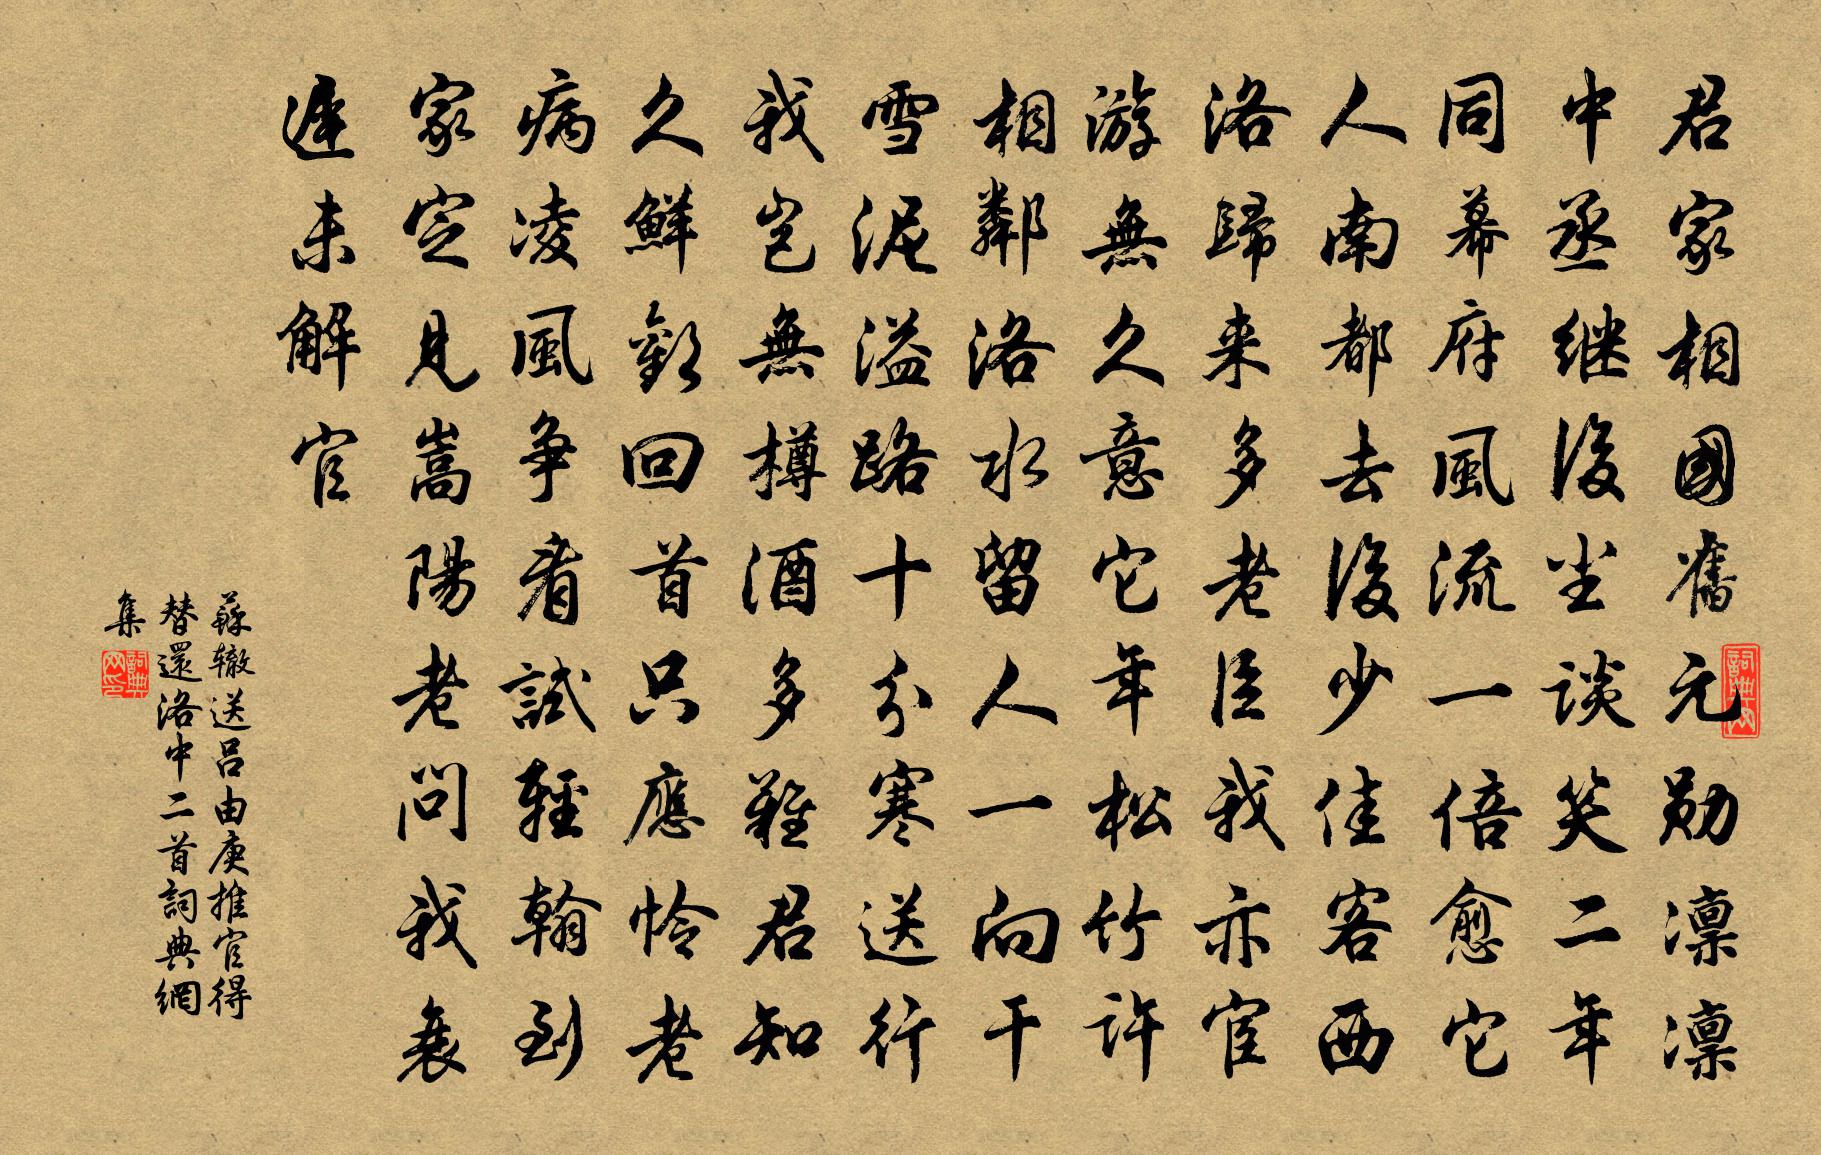 君家相國舊元勛凛凛
中丞继後坐談笑二年
同幕府風流一倍愈它
人南都去後少佳客西
洛歸来多老臣我亦宦
游無久意它年松竹許
相鄰洛水留人一向干
雪泥溢路十分寒送行
我豈無樽酒多難君知
久鮮歡回首只應怜老
病凌風争看試輕翰到
家定見嵩陽老問我衰
遲未解官
蘇辙送吕由庚推官得
替還洛中二首詞典網
集
詞典网
詞典网印